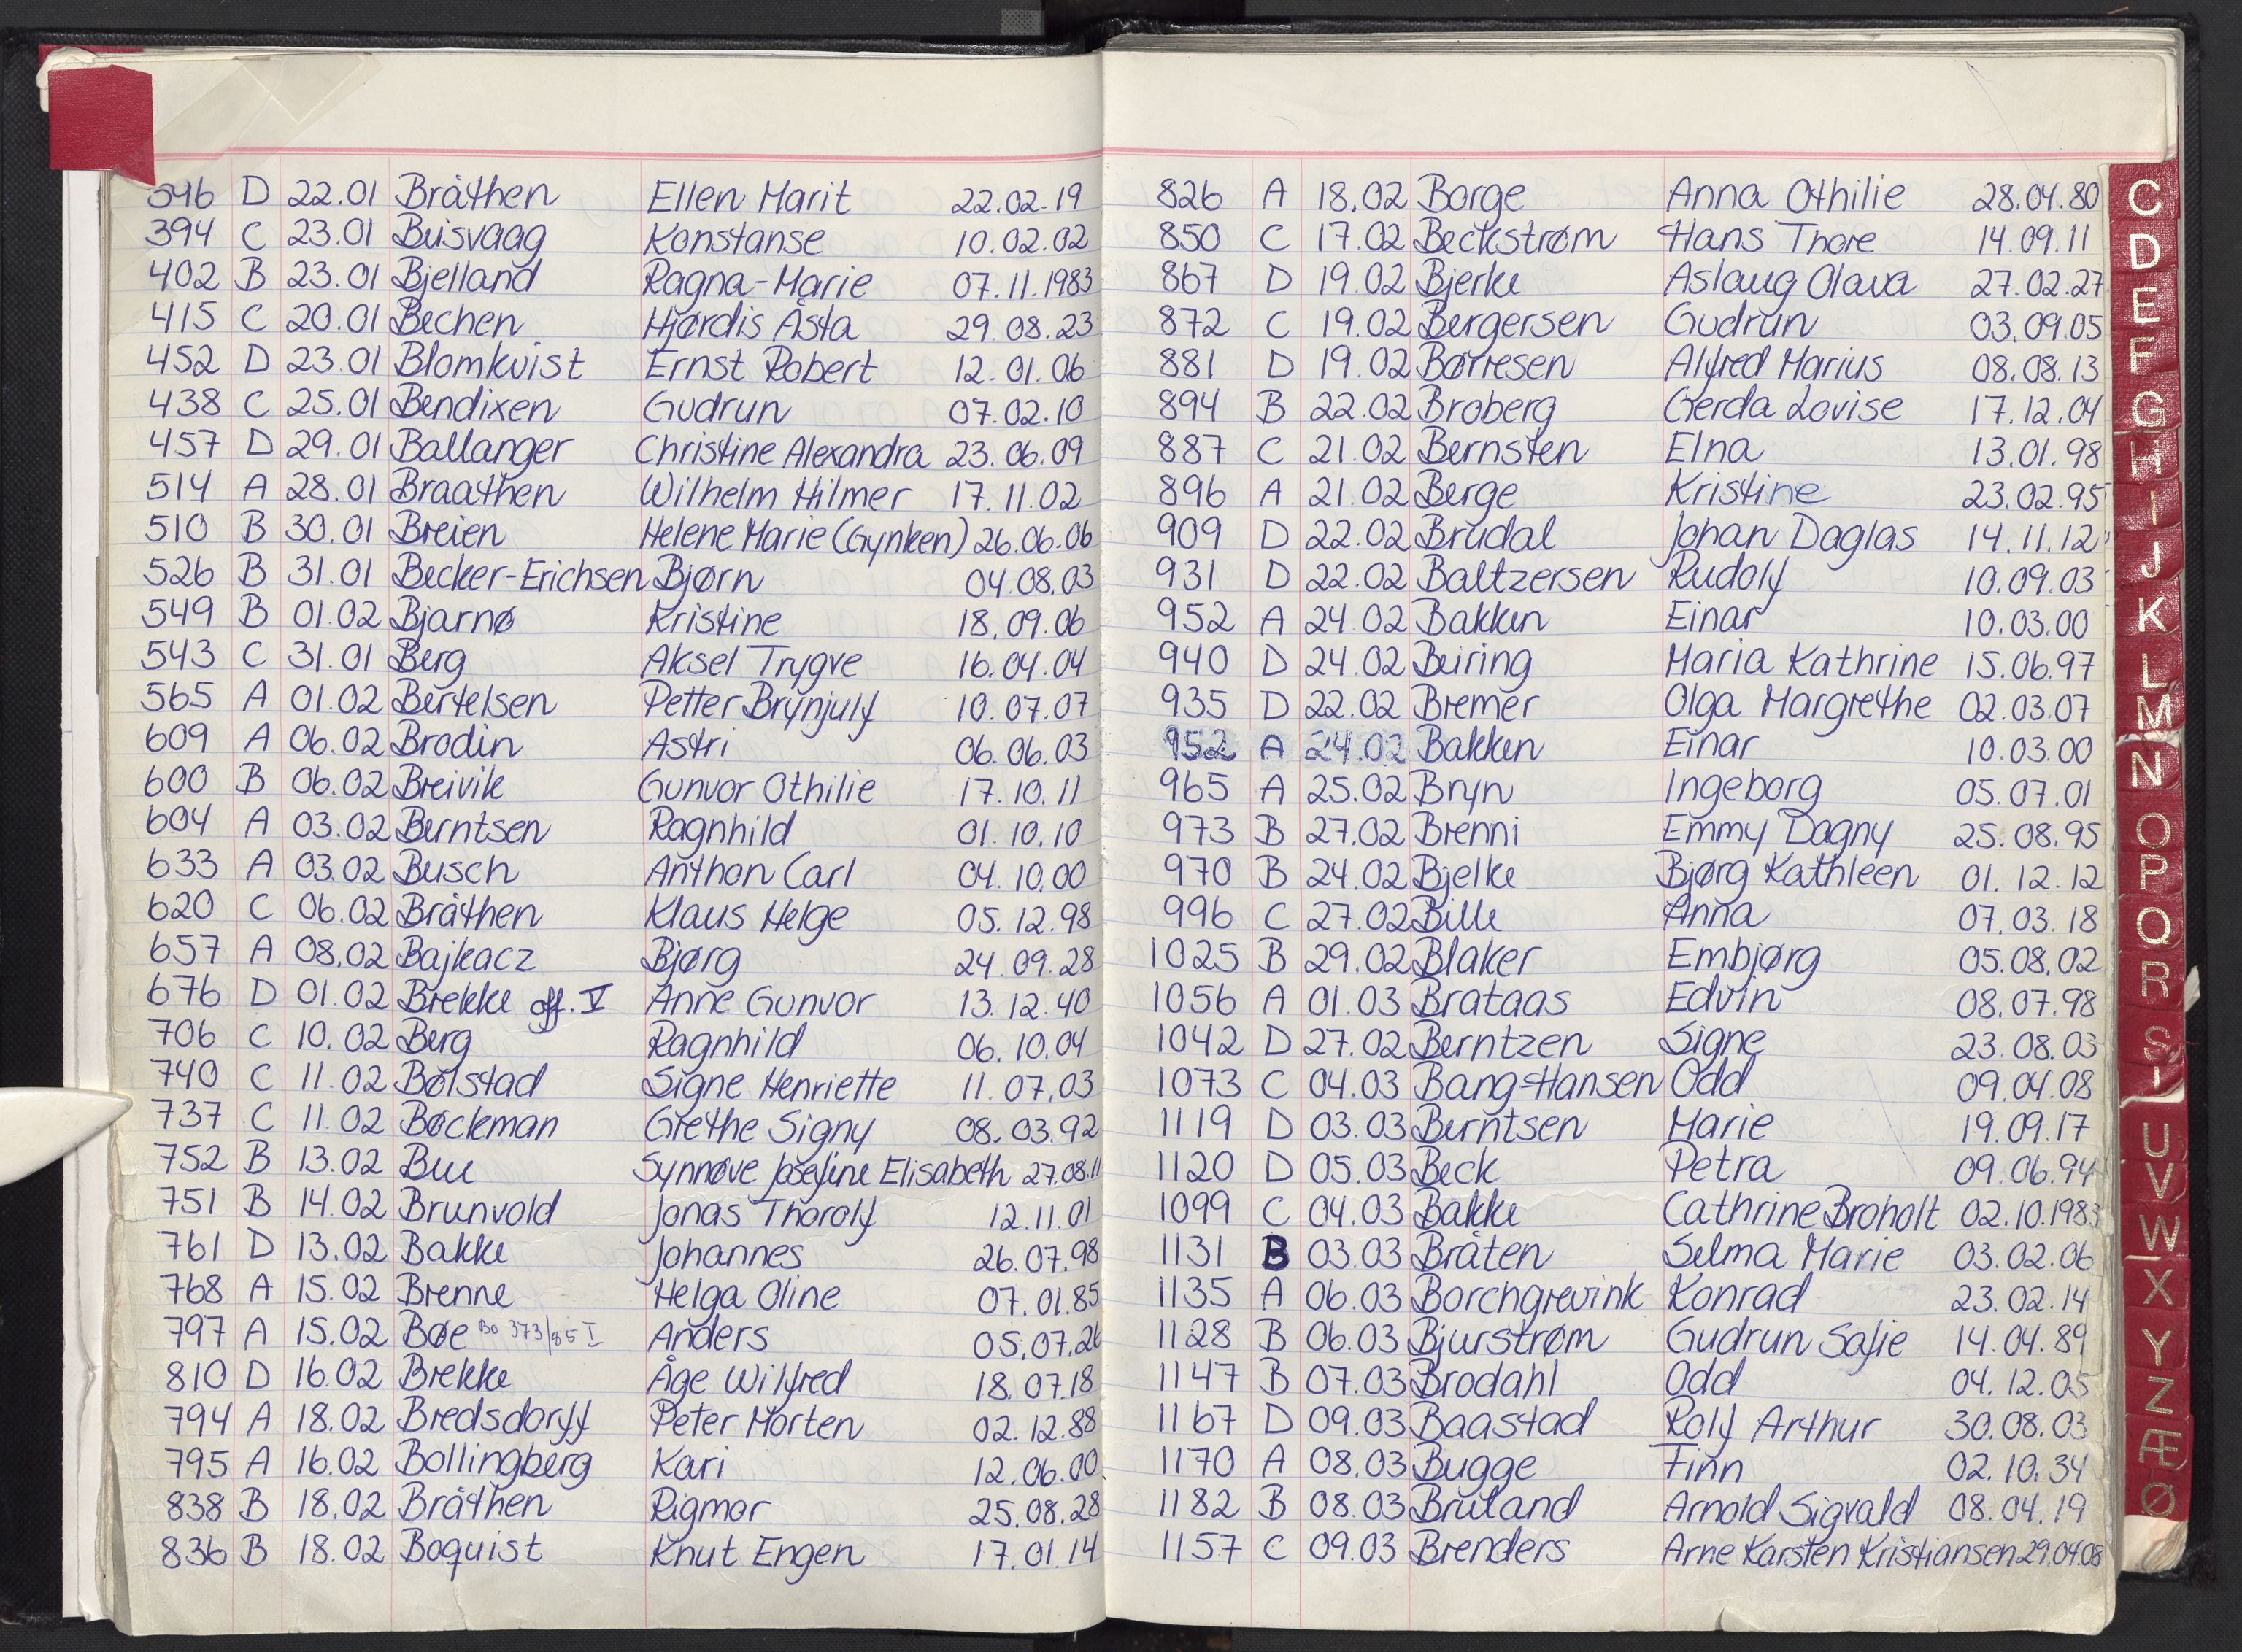 546 D 22.01 Bråthen Ellen Marit 22.02.19
394 C 23.01 Beisvaag Konstanse 10.02.02
402 B 23.01 Bjelland Ragna-Marie 07.11.1983
415 C 20.01 Bechen Hjørdis Åsta 29.08.23
452 D 23.01 Blomkvist Ernst Robert 12.01.06
438 C 25.01 Bendixen Gudrun 07.02.10
457 D 29.01 Ballanger Christine Alexandra 23.06.09
514 A 28.01 Braathen Wilhelm Hilmer 17.11.02
510 B 30.01 Breien Helene Marie (Gynken) 26.06.06
526 B 31.01 Becker-Erichsen Bjørn 04.08.03
549 B 01.02 Bjarnø Kristine 18.09.06
543 C 31.01 Berg Aksel Trygve 16.04.04
565 A 01.02 Bertelsen Petter Brynjulf 10.07.07
609 A 06.02 Brodin Astri 06.06.03
600 B 06.02 Breivik Gunvor Othilie 17.10.11
604 A 03.02 Berntsen Ragnhild 01.10.10
633 A 03.02 Busch Anthon Carl 04.10.00
620 C 06.02 Bråthen Klaus Helge 05.12.98
657 A 08.02 Bajkacz Bjørg 24.09.28
676 D 01.02 Brekke off. V Anne Gunvor 13.12.40
706 C 10.02 Berg Ragnhild 06.10.04
740 C 11.02 Bølstad Signe Henriette 11.07.03
737 C 11.02 Bøckman Grethe Signy 08.03.92
752 B 13.02 Bue Synnøve Josefine Elisabeth 27.08.11
751 B 14.02 Brunvold Jonas Thorolf 12.11.01
761 D 13.02 Bakke Johannes 26.07.98
768 A 15.02 Brenne Helga Oline 07.01.85
797 A 15.02 Bøe Bo 373/85 I Anders 05.07.26
810 D 16.02 Brekke Åge Wilfred 18.07.18
794 A 18.02 Bredsdorff Peter Morten 02.12.88
795 A 16.02 Bollingberg Kari 12.06.00
838 B 18.02 Bråthen Rigmor 25.08.28
836 B 18.02 Boquist Knut Engen 17.01.14
826 A 18.02 Borge Anna Othilie 28.04.80
850 C 17.02 Beckstrøm Hans Thore 14.09.11
867 D 19.02 Bjerke Aslaug Olava 27.02.27
872 C 19.02 Bergersen Gudrun 03.09.05
881 D 19.02 Børresen Alfred Marius 08.08.13
894 B 22.02 Broberg Gerda Lovise 17.12.04
887 C 21.02 Bernsten Elna 13.01.98
896 A 21.02 Berge Kristine 23.02.95
909 D 22.02 Brudal Johan Daglas 14.11.12
931 D 22.02 Baltzersen Rudolf 10.09.03
952 A 24.02 Bakken Einar 10.03.00
940 D 24.02 Beiring Maria Kathrine 15.06.97
935 D 22.02 Bremer Olga Margrethe 02.03.07
952 A 24.02 Bakken Einar 10.03.00
965 A 25.02 Bryn Ingeborg 05.07.01
973 B 27.02 Brenni Emmy Dagny 25.08.95
970 B 24.02 Bjelke Bjørg Kathleen 01.12.12
996 C 27.02 Bille Anna 07.03.18
1025 B 29.02 Blaker Embjørg 05.08.02
1056 A 01.03 Brataas Edvin 08.07.98
1042 D 27.02 Berntzen Signe 23.08.03
1073 C 04.03 Bang-Hansen Odd 09.04.08
1119 D 03.03 Berntsen Marie 19.09.17
1120 D 05.03 Beck Petra 09.06.94
1099 C 04.03 Bakke Cathrine Broholt 02.10.1983
1131 B 03.03 Bråten Selma Marie 03.02.06
1135 A 06.03 Borchgrevink Konrad 23.02.14
1128 B 06.03 Bjurstrøm Gudrun Safie 14.04.89
1147 B 07.03 Brodahl Odd 04.12.05
1167 D 09.03 Baastad Rolf Arthur 30.08.03
1170 A 08.03 Bugge Finn 02.10.34
1182 B 08.03 Bruland Arnold Sigvald 08.04.19
1157 C 09.03 Brenders Arne Karsten Kristiansen 29.04.08
C
D
E
F
G
H
I
J
K
L
M
N
O
P
Q
R
S
U
V
W
X
Y
Z
Æ
Ø